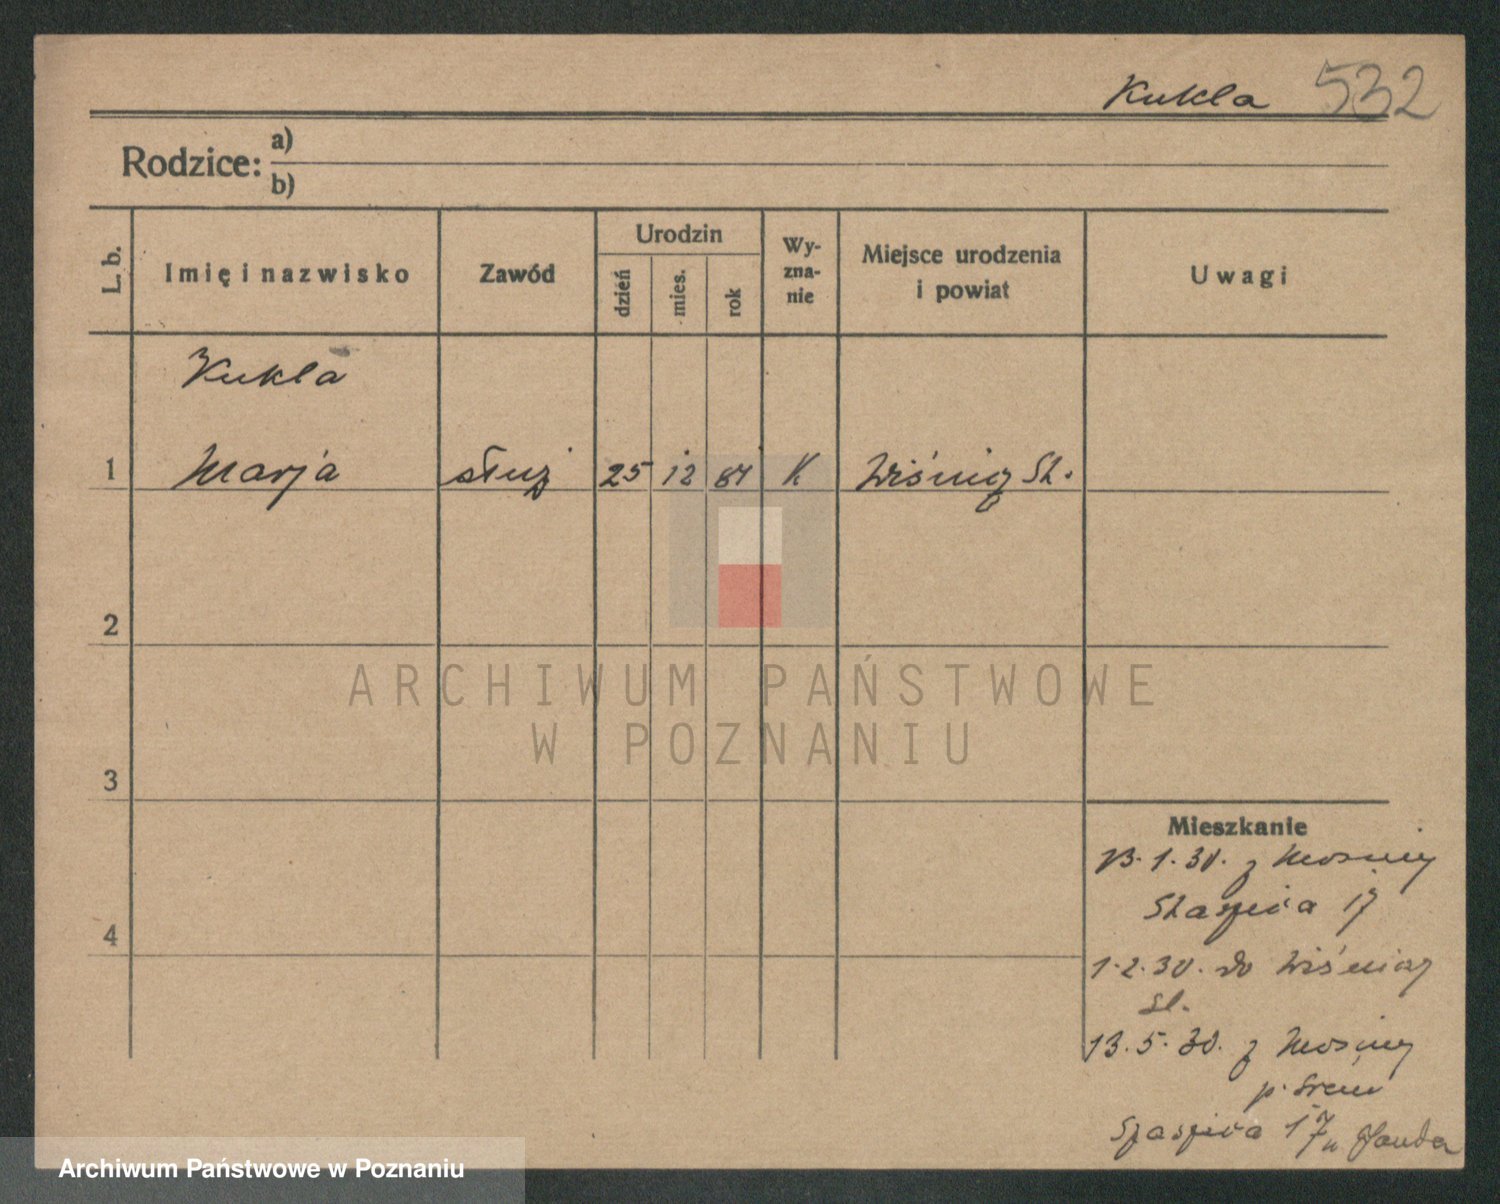 Kukla 532
Rodzice: a)
b)
L. b.
Imię i nazwisko
Zawód
Urodzin
dzień
mies.
rok
Wy-
zna-
nie
Miejsce urodzenia
i powiat
Uwagi
Kukla
1 Marja służ 25 12 84 K Wiśnicz St.
2
3
4
ARCHIWUM PAŃSTWOWE
W POZNANIU
Mieszkanie
13.1.30. z Mosiny
17
1.2.30. do
13.5.30. z Mosiny
p. Śrem
17 u
Archiwum Państwowe w Poznaniu